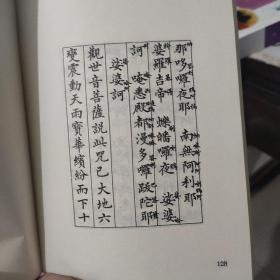 那哆囉夜耶　南無阿利耶
婆羅吉帝　爍皤囉夜　娑婆
訶　唵悉殿都漫多囉　跋陀耶
娑婆訶
觀世音菩薩說此咒已大地六
變震動天雨寶華繽紛而下十
128